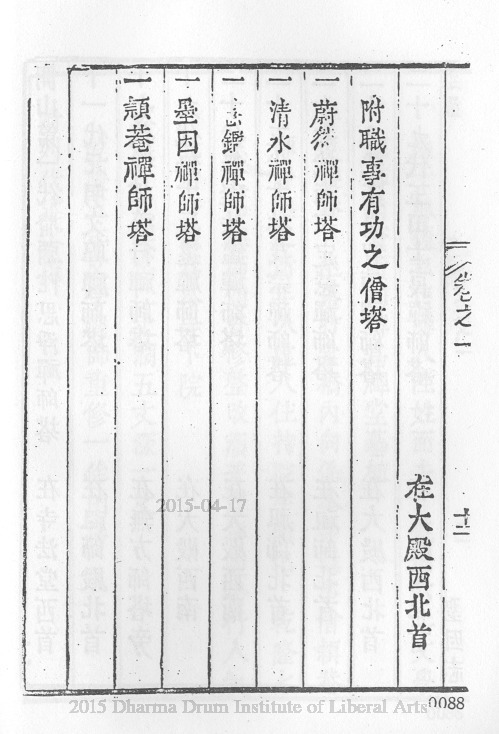 卷之一
十二
在大殿西北首
附職事有功之僧塔
一蔚然禪師塔
一清水禪師塔
一 鑑禪師塔
一 因禪師塔
一 菴禪師塔
2015-04-17
2015 Dharma Drum Institute of Liberal Arts
0088